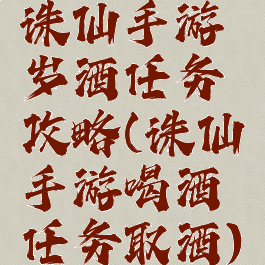 诛仙手游
岁酒任务
攻略(诛仙
手游喝酒
任务取酒)